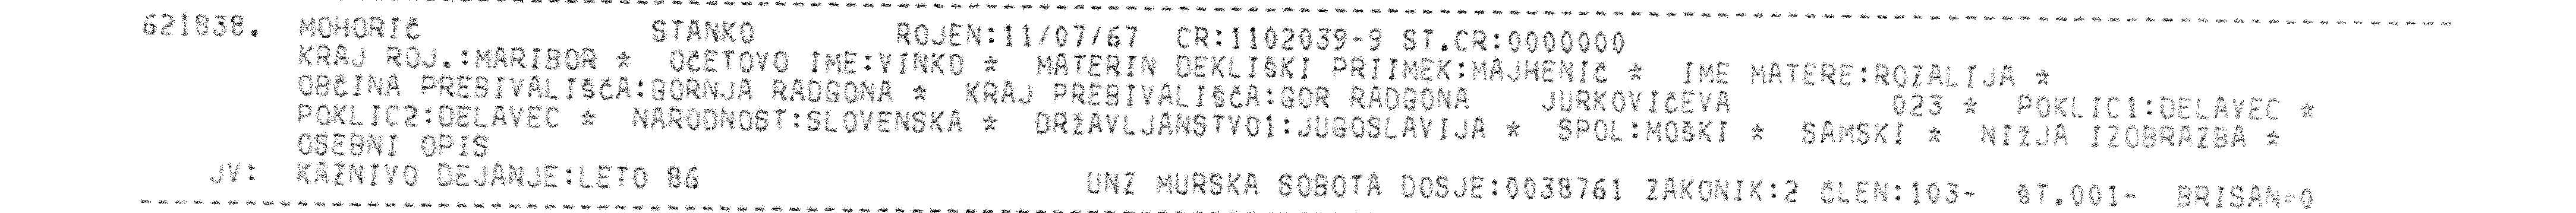 621838. MOHORIČ STANKO ROJEN:11/07/67 CR:1102039-9 ST.CR:0000000
KRAJ ROJ.:MARIBOR * OČETOVO IME:VINKO * MATERIN DEKLIŠKI PRIIMEK:MAJHENIČ * IME MATERE:ROZALIJA *
OBČINA PREBIVALIŠČA:GORNJA RADGONA * KRAJ PREBIVALIŠČA:GOR RADGONA JURKOVIČEVA 023 * POKLIC1:DELAVEC *
POKLIC2:DELAVEC * NARODNOST:SLOVENSKA * DRŽAVLJANSTVO1:JUGOSLAVIJA * SPOL:MOŠKI * SAMSKI * NIŽJA IZOBRAZBA *
OSEBNI OPIS
JV: KAZNIVO DEJANJE:LETO 86 UNZ MURSKA SOBOTA DOSJE:0038761 ZAKONIK:2 ČLEN:103- ŠT.001- BRISAN=0